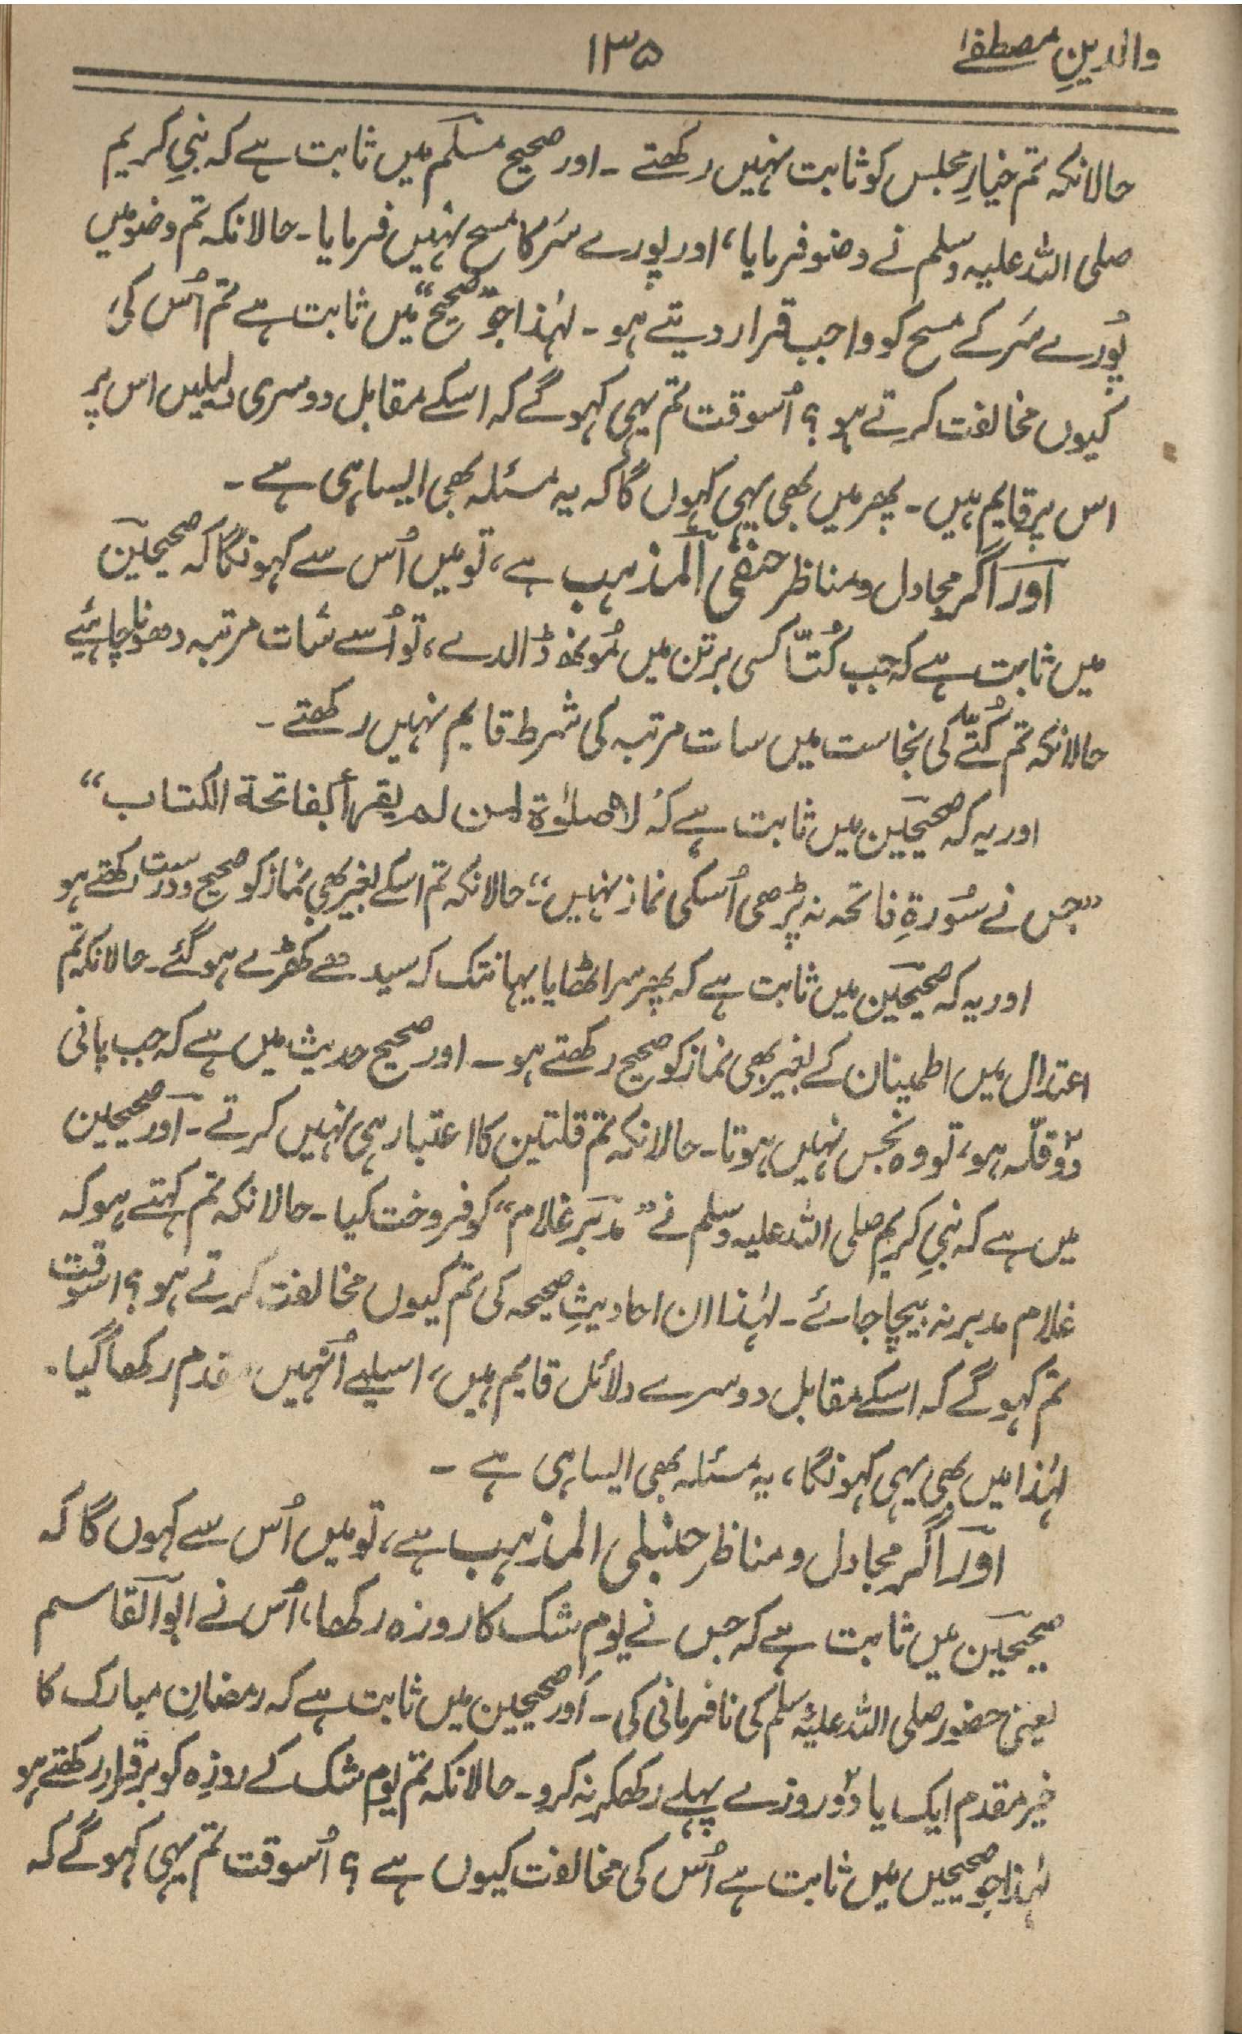 والدینِ مصطفےٰ ۱۳۵
حالانکہ تم خیارِ مجلس کو ثابت نہیں رکھتے ۔ اور صحیح مسلم میں ثابت ہے کہ نبیِ کریم
صلی اللہ علیہ وسلم نے وضو فرمایا، اور پورے سَر کا مسح نہیں فرمایا۔ حالانکہ تم وضو میں
پُورے سَر کے مسح کو واجب قرار دیتے ہو ۔ لہٰذا جو ”صحیح“ میں ثابت ہے تم اُس کی
کیوں مخالفت کرتے ہو ؟ اُسوقت تم یہی کہو گے کہ اسکے مقابل دوسری دلیلیں اس پر
اس پر قایم ہیں ۔ پھر میں بھی یہی کہوں گا کہ یہ مسئلہ بھی ایسا ہی ہے ۔
اور اگر مجادل و مناظر حنفی المذہب ہے، تو میں اُس سے کہونگا کہ صحیحین
میں ثابت ہے کہ جب کُتّا کسی برتن میں مُونھ ڈالدے، تو اُسے سات مرتبہ دھونا چاہئیے
حالانکہ تم کُتّے کی نجاست میں سات مرتبہ کی شرط قایم نہیں رکھتے ۔
اور یہ کہ صحیحین میں ثابت ہے کہ ”لا صلوٰۃ لمن لم یقرأ بفاتحۃ الکتاب“
”جس نے سُورۃِ فاتحہ نہ پڑھی اُسکی نماز نہیں“؛ حالانکہ تم اسکے بغیر بھی نماز کو صحیح و درست رکھتے ہو
اور یہ کہ صحیحین میں ثابت ہے کہ پھر سر اٹھایا یہانتک کہ سیدھے کھڑے ہو گئے ۔ حالانکہ تم
اعتدال میں اطمینان کے بغیر بھی نماز کو صحیح رکھتے ہو ۔ اور صحیح حدیث میں ہے کہ جب پانی
دو۲ قلّہ ہو، تو وہ نجس نہیں ہوتا ۔ حالانکہ تم قلتین کا اعتبار ہی نہیں کرتے ۔ اور صحیحین
میں ہے کہ نبیِ کریم صلی اللہ علیہ وسلم نے ”مدبّر غلام“ کو فروخت کیا ۔ حالانکہ تم کہتے ہو کہ
غلام مدبر نہ بیچا جائے ۔ لہٰذا ان احادیثِ صحیحہ کی تم کیوں مخالفت کرتے ہو ؟ اسوقت
تم کہو گے کہ اسکے مقابل دوسرے دلائل قایم ہیں، اسیلیے اُنہیں مقدم رکھا گیا ۔
لہٰذا میں بھی یہی کہونگا، یہ مسئلہ بھی ایسا ہی ہے ۔
اور اگر مجادل و مناظر حنبلی المذہب ہے، تو میں اُس سے کہوں گا کہ
صحیحین میں ثابت ہے کہ جس نے یوم شک کا روزہ رکھا، اُس نے ابو القاسم
یعنی حضور صلی اللہ علیہ وسلم کی نافرمانی کی ۔ اور صحیحین میں ثابت ہے کہ رمضانِ مبارک کا
خیر مقدم ایک یا دو۲ روزے پہلے رکھکر نہ کرو ۔ حالانکہ تم یوم شک کے روزہ کو برقرار رکھتے ہو
لہٰذا جو صحیحین میں ثابت ہے اُس کی مخالفت کیوں ہے ؟ اُسوقت تم یہی کہو گے کہ